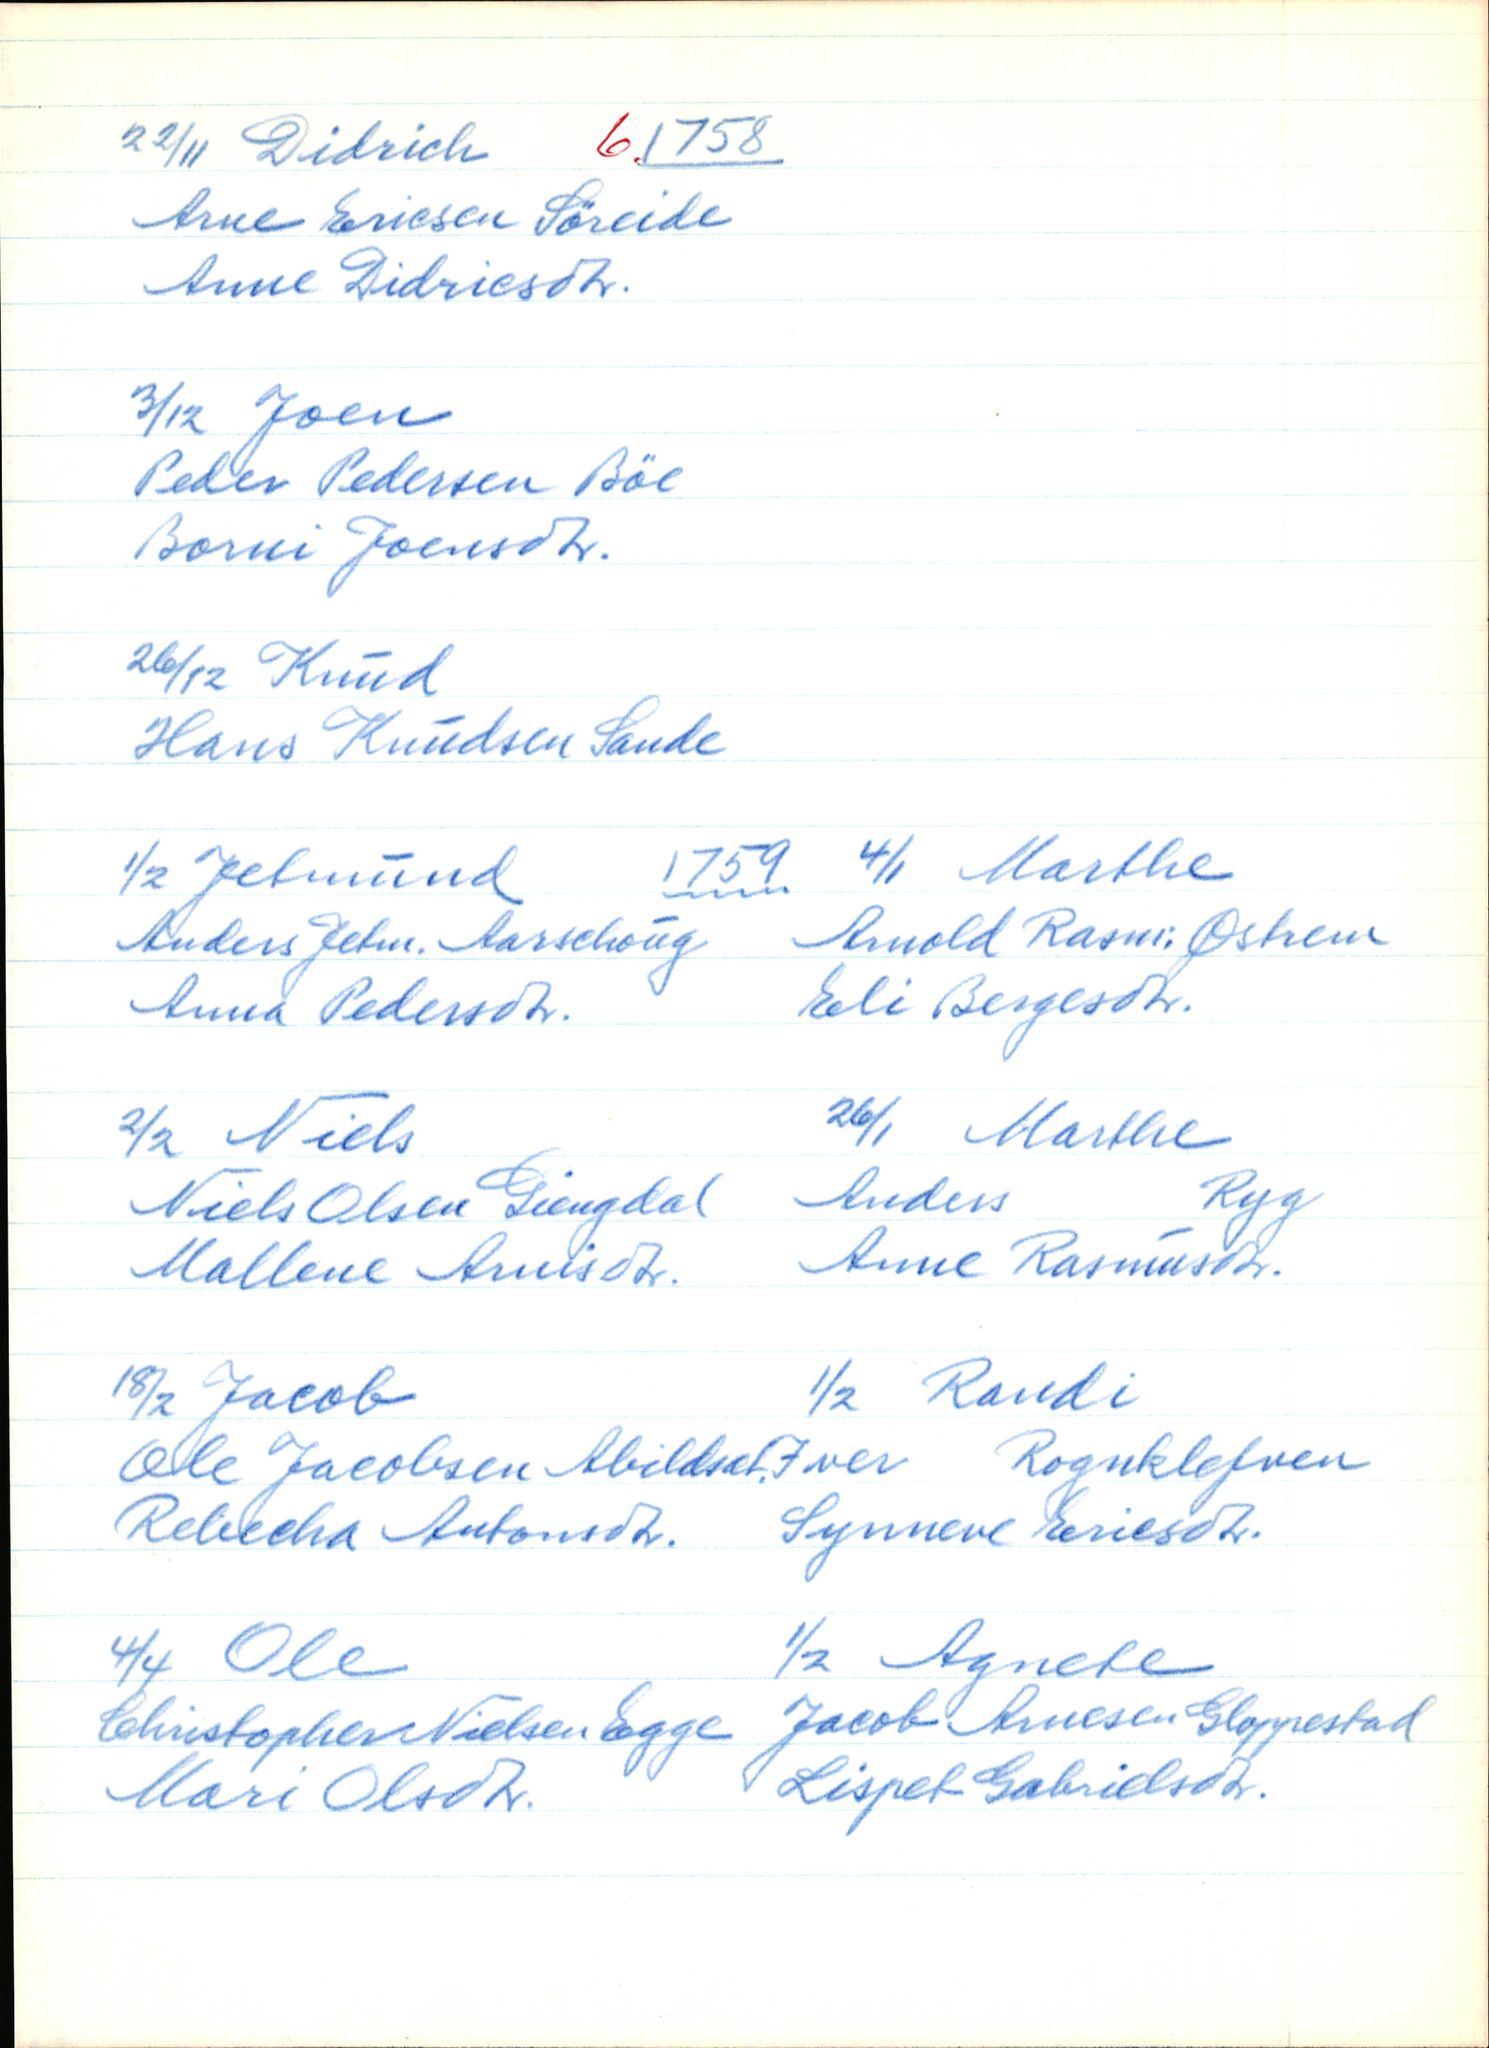 22/11 Didrich 6. 1758
Arne Ericsen Söreide
Anne Didricsdtr.
3/12 Joen
Peder Pedersen Böe
Borni Joensdtr.
26/12 Knud
Hans Knudsen Sande
1/2 Jetmund 1759
Anders Jetm. Aarschoug
Anna Pedersdtr.
2/2 Niels
Niels Olsen Giengdal
Mallene Arnisdtr.
18/2 Jacob
Ole Jacobsen Abildset.
Rebecha Antonsdtr.
4/4 Ole
Christopher Nielsen Egge
Mari Olsdtr.
4/1 Marthe
Arnold Rasm. Østrem
Eli Bergesdtr.
26/1 Marthe
Anders Ryg
Anne Rasmusdtr.
1/2 Randi
Iver Rognklefven
Synneve Ericsdtr.
1/2 Agnete
Jacob Arnesen Gloppestad
Lispet Gabrielsdtr.